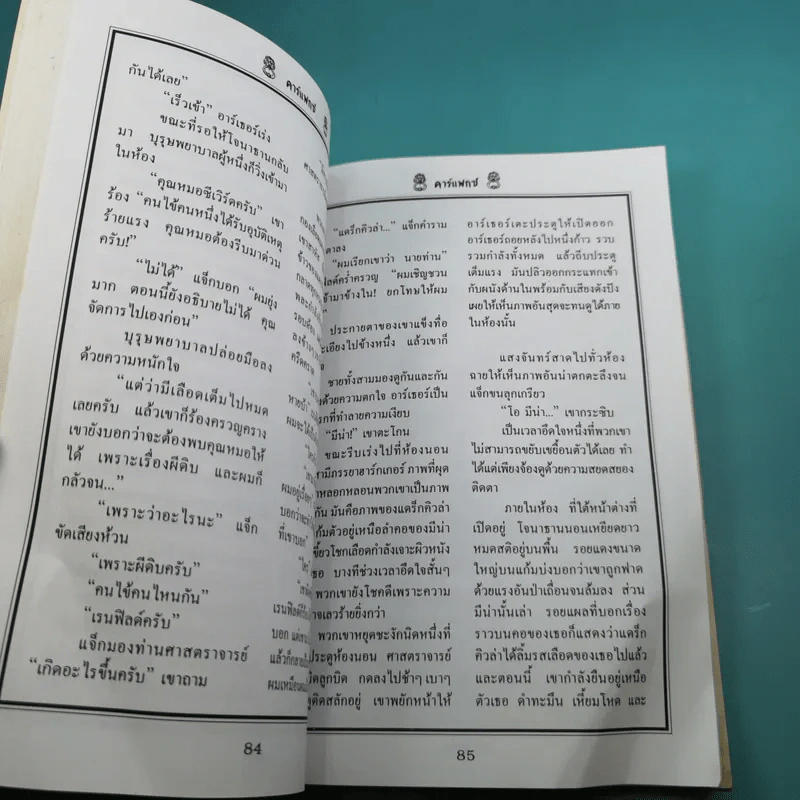 คาร์แฟกซ์
กันได้เลย”
“เร็วเข้า” อาร์เธอร์เร่ง
ขณะที่รอให้โจนาธานกลับ
มา บุรุษพยาบาลผู้หนึ่งก็วิ่งเข้ามา
ในห้อง
“คุณหมอซีเวิร์ดครับ” เขา
ร้อง “คนไข้คนหนึ่งได้รับอุบัติเหตุ
ร้ายแรง คุณหมอต้องรีบมาด่วน
ครับ!”
“ไม่ได้” แจ็กบอก “ผมยุ่ง
มาก ตอนนี้ยังอธิบายไม่ได้ คุณ
จัดการไปเองก่อน”
บุรุษพยาบาลปล่อยมือลง
ด้วยความหนักใจ
“แต่ว่ามีเลือดเต็มไปหมด
เลยครับ แล้วเขาก็ร้องครวญคราง
เขายังบอกว่าจะต้องพบคุณหมอให้
ได้ เพราะเรื่องผีดิบ และผมก็
กลัวจน...”
“เพราะว่าอะไรนะ” แจ็ก
ขัดเสียงห้วน
“เพราะผีดิบครับ”
“คนไข้คนไหนกัน”
“เรนฟิลด์ครับ”
แจ็กมองท่านศาสตราจารย์
“เกิดอะไรขึ้นครับ” เขาถาม
84
คาร์แฟกซ์
“แดร็กคิวล่า...” แจ็กคำราม
“ผมเรียกเขาว่า นายท่าน”
คร่ำครวญ “ผมเชิญชวน
ข้ามาข้างใน! ยกโทษให้ผม
ประกายตาของเขาแข็งทื่อ
เอียงไปข้างหนึ่ง แล้วเขาก็
ชายทั้งสามมองดูกันและกัน
ด้วยความตกใจ อาร์เธอร์เป็น
ที่ทำลายความเงียบ
“มีน่า!” เขาตะโกน
ขณะรีบเร่งไปที่ห้องนอน
ภรรยาฮาร์กเกอร์ ภาพที่ผุด
หลอกหลอนพวกเขาเป็นภาพ
กัน มันคือภาพของแดร็กคิวล่า
ก้มตัวอยู่เหนือลำคอของมีน่า
เขี้ยวโชกเลือดกำลังเจาะผิวหนัง
บางทีช่วงเวลาอึดใจสั้นๆ
พวกเขายังโชคดีเพราะความ
เลวร้ายยิ่งกว่า
พวกเขาหยุดชะงักนิดหนึ่งที่
ประตูห้องนอน ศาสตราจารย์
ลูกบิด กดลงไปช้าๆ เบาๆ
ติดสลักอยู่ เขาพยักหน้าให้
อาร์เธอร์เตะประตูให้เปิดออก
อาร์เธอร์ถอยหลังไปหนึ่งก้าว รวบ
รวมกำลังทั้งหมด แล้วถีบประตู
เต็มแรง มันปลิวออกกระแทกเข้า
กับผนังด้านในพร้อมกับเสียงดังปัง
เผยให้เห็นภาพอันสุดจะทนดูได้ภาย
ในห้องนั้น
แสงจันทร์สาดไปทั่วห้อง
ฉายให้เห็นภาพอันน่าตกตะลึงจน
แจ็กขนลุกเกรียว
“โอ มีน่า...” เขากระซิบ
เป็นเวลาอึดใจหนึ่งที่พวกเขา
ไม่สามารถขยับเขยื้อนตัวได้เลย ทำ
ได้แต่เพียงจ้องดูด้วยความสยดสยอง
ติดตา
ภายในห้อง ที่ใต้หน้าต่างที่
เปิดอยู่ โจนาธานนอนเหยียดยาว
หมดสติอยู่บนพื้น รอยแดงขนาด
ใหญ่บนแก้มบ่งบอกว่าเขาถูกฟาด
ด้วยแรงอันป่าเถื่อนจนล้มลง ส่วน
มีน่านั้นเล่า รอยแผลที่บอกเรื่อง
ราวบนคอของเธอก็แสดงว่าแดร็ก
คิวล่าได้ลิ้มรสเลือดของเธอไปแล้ว
และตอนนี้ เขากำลังยืนอยู่เหนือ
ตัวเธอ ดำทะมึน เหี้ยมโหด และ
85